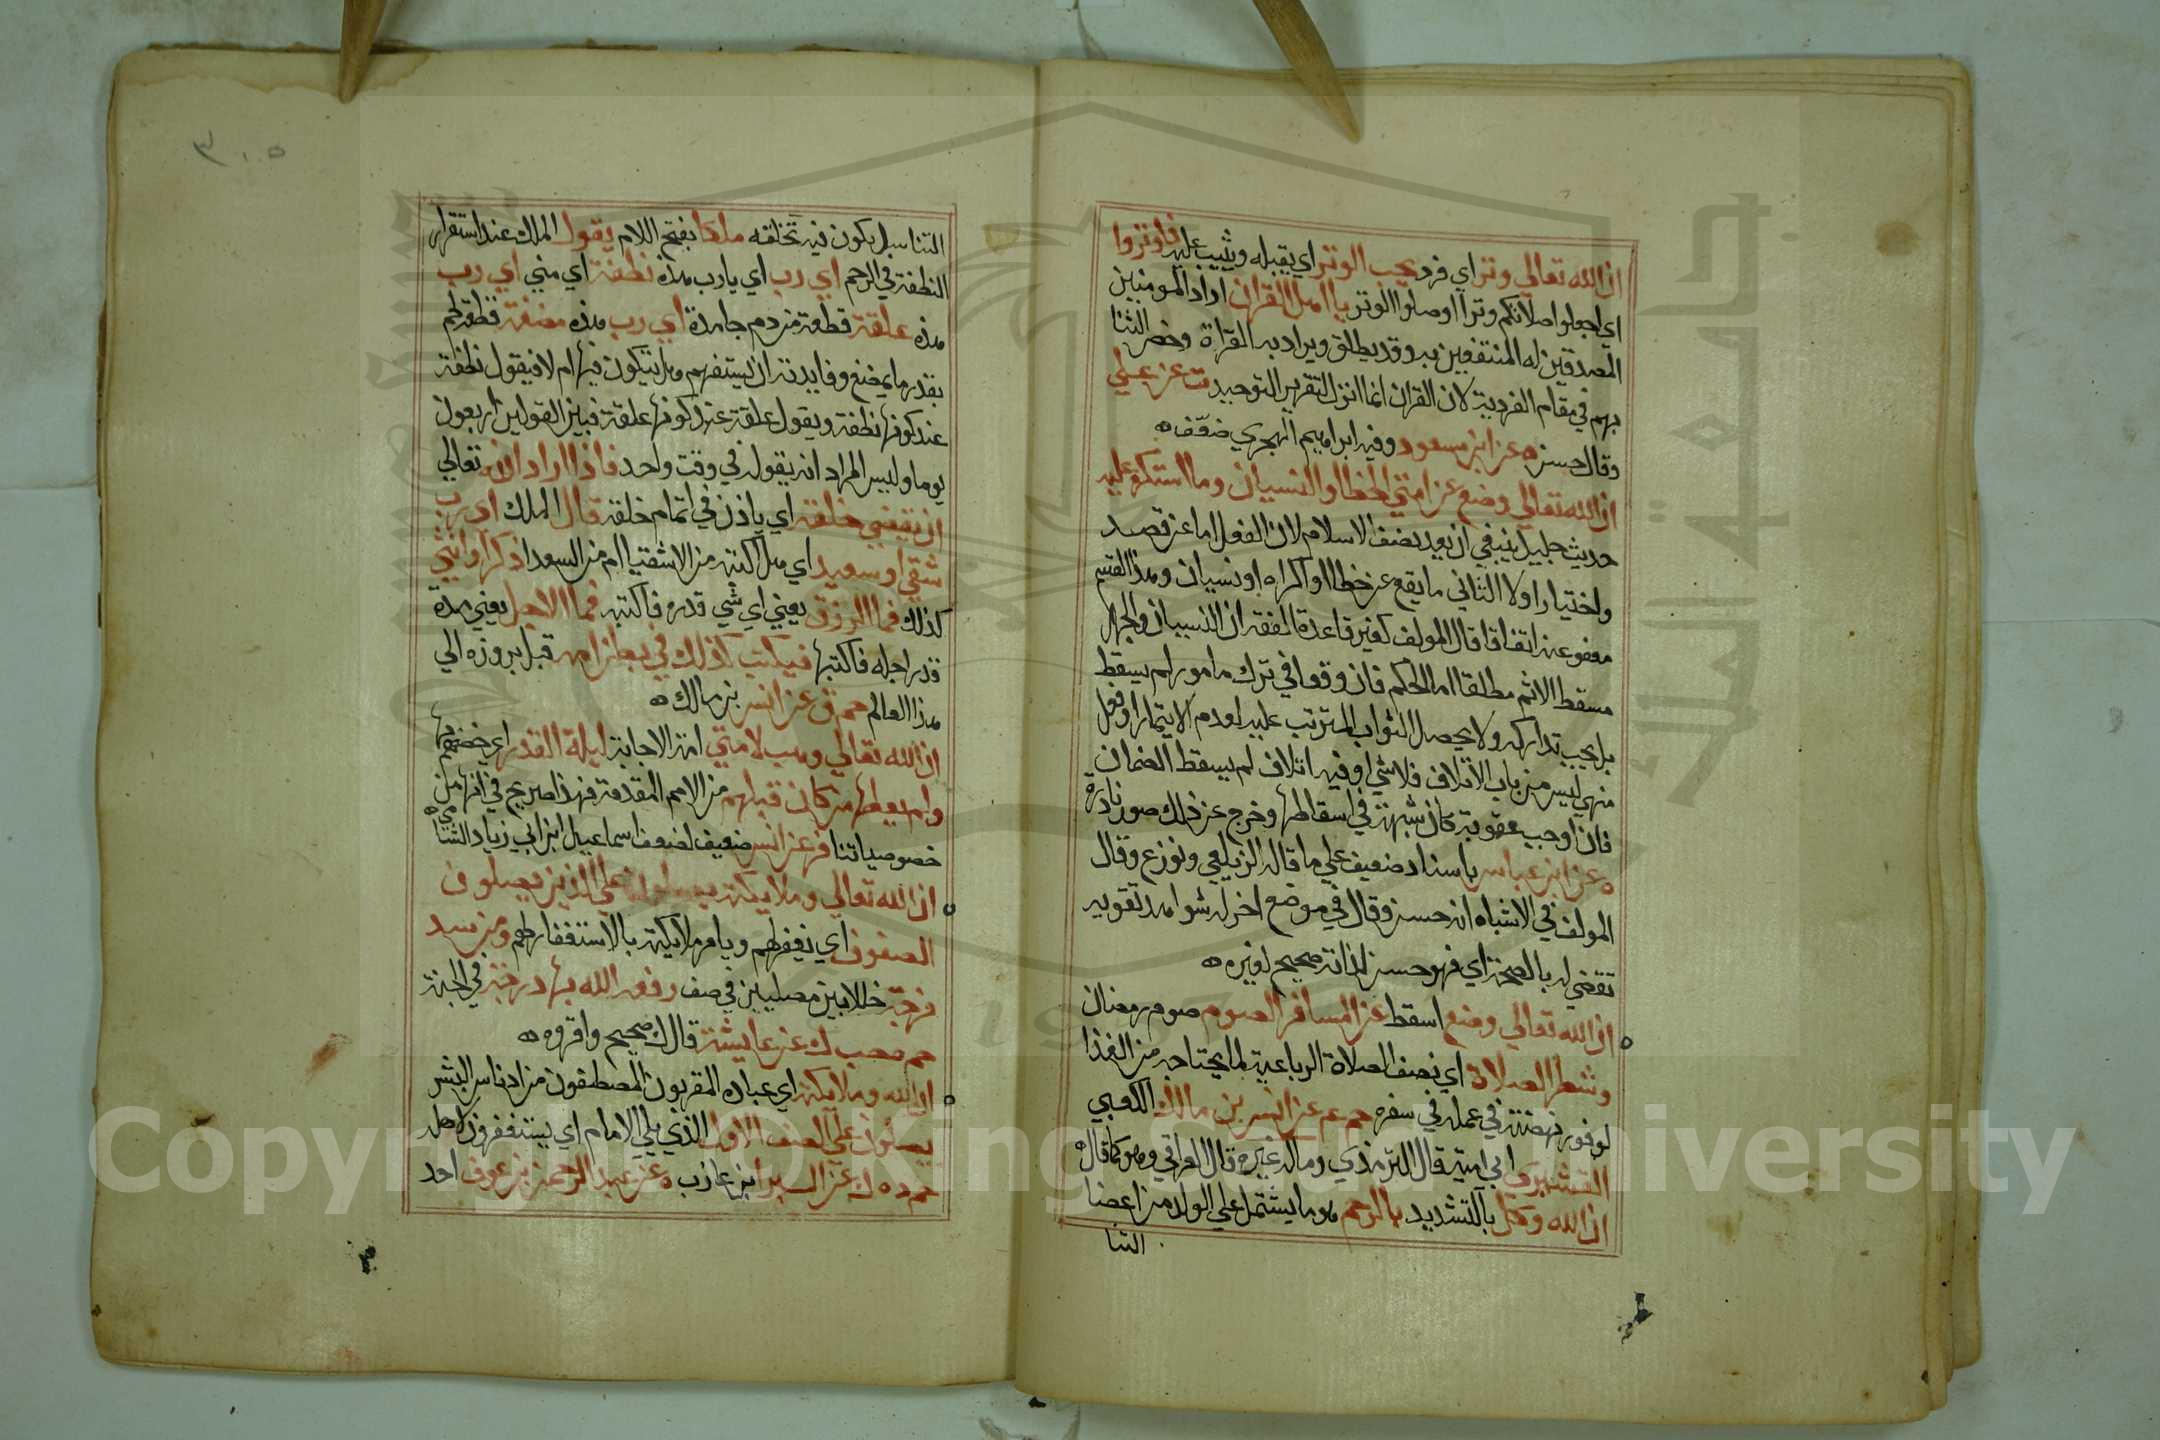 ان الله تعالي وتر اي فرد يحب الوتر اي يقبله ويثيب عليه فاوتروا
اي اجعلوا صلاتكم وترا او صلوا الوتر يا اهل القران اراد المومنين
المصدقين له المنتفعين به وقد يطلق ويراد به القراة وخص الثنا
بهم في مقام الفردية لان القران انما انزل لتقرير التوحيد ت عن علي
وقال حسن ه عن ابن مسعود وفيه ابراهيم الهجري ضعف ه
ان الله تعالي وضع عن امتي الخطا والنسيان وما استكرهوا عليه
حديث جليل ينبغي ان يعد نصف الاسلام لان الفعل اما عن قصد
واختيار او لا الثاني ما يقع عن خطا او اكراه او نسيان وهذا القسم
معفو عنه اتفاقا قال المولف كغيره قاعدة الفقه ان النسيان والجهل
مسقط الاثم مطلقا اما الحكم فان وقعا في ترك مامور لم يسقط
بل يجب تداركه ولا يحصل الثواب المترتب عليه لعدم الايتمار او فعل
منهي ليس من باب الاتلاف فلا شي او فيه اتلاف لم يسقط الضمان
فان اوجب عقوبة كان شبهة في اسقاطها وخرج عن ذلك صور نادرة
ه عن ابن عباس باسناد ضعيف علي ما قاله الزيلعي ونوزع وقال
المولف في الاشباه انه حسن وقال في موضع اخر له شواهد تقويه
تقضي له بالصحة اي فهو حسن لذاته صحيح لغيره ه
ان الله تعالي وضع اسقط عن المسافر الصوم صوم رمضان
وشطر الصلاة اي نصف الصلاة الرباعية لما يحتاجه من الغذا
لوفور نهضته في عمله في سفره حم عم عن انس بن مالك الكعبي
القشيري ابي امية قال الترمذي وماله غيره قال العراقي وهو كما قال ه
ان الله وكل بالتشديد بالرحم هو ما يشتمل علي الولد من اعضا
التنا
٣٠٥
التناسل يكون فيه تخلقه ملكا بفتح اللام يقول الملك عند استقرار
النطفة في الرحم اي رب اي يا رب هذه نطفة اي مني اي رب
هذه علقة قطعة من دم جامدة اي رب هذه مضغة قطعة لحم
بقدر ما يمضغ وفايدته ان يستفهم هل يتكون فيها ام لا فيقول نطفة
عند كونها نطفة ويقول علقة عند كونها علقة فبين القولين اربعون
يوما وليس المراد انه يقوله في وقت واحد فاذا اراد الله تعالي
ان يقضي خلقه اي ياذن في اتمام خلقه قال الملك اي رب
شقي او سعيد اي هل اكتبه من الاشقيا ام من السعدا ذكر او انثي
كذلك فما الرزق يعني اي شي قدره فاكتبه فما الاجل يعني مدة
قدر اجله فاكتبها فيكتب كذلك في بطن امه قبل بروزه الي
هذا العالم حم ق عن انس بن مالك ه
ان الله تعالي وهب لامتي امة الاجابة ليلة القدر اي خصهم بها
ولم يعطها من كان قبلهم من الامم المقدمة فهذا صريح في انها من
خصوصياتنا فر عن انس ضعيف لضعف اسماعيل ابن ابي زياد الشامي ه
ان الله تعالي وملايكته يصلون علي الذين يصلون
الصفوف اي يغفر لهم ويامر ملايكته بالاستغفار لهم ومن سد
فرجة خللا بين مصليين في صف رفعه الله بها درجة في الجنة
حم ه حب ك عن عايشة قال ك صحيح واقروه ه
ان الله وملايكته اي عباده المقربون المصطفون من ادناس البشر
يصلون علي الصف الاول الذي يلي الامام اي يستغفرون لاهله
حم د ه ك عن البرا ابن عازب ه عن عبد الرحمن بن عوف احد
Copyright © King Saud University